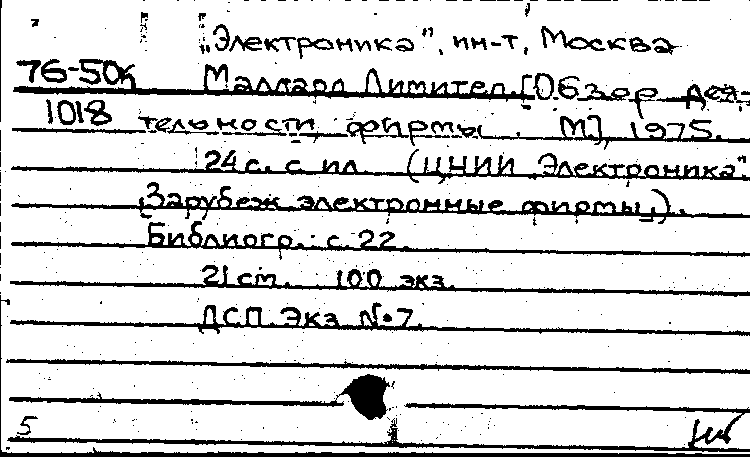 „Электроника", ин-т, Москва
76-50к Маллард Лимител. [Обзор дея-
1018 тельности фирмы. М.], 1975.
24 с. с ил. (ЦНИИ „Электроника".
„Зарубеж. электронные фирмы„).
Библиогр.: с. 22.
21 см. 100 экз.
ДСП. Экз. №7.
5